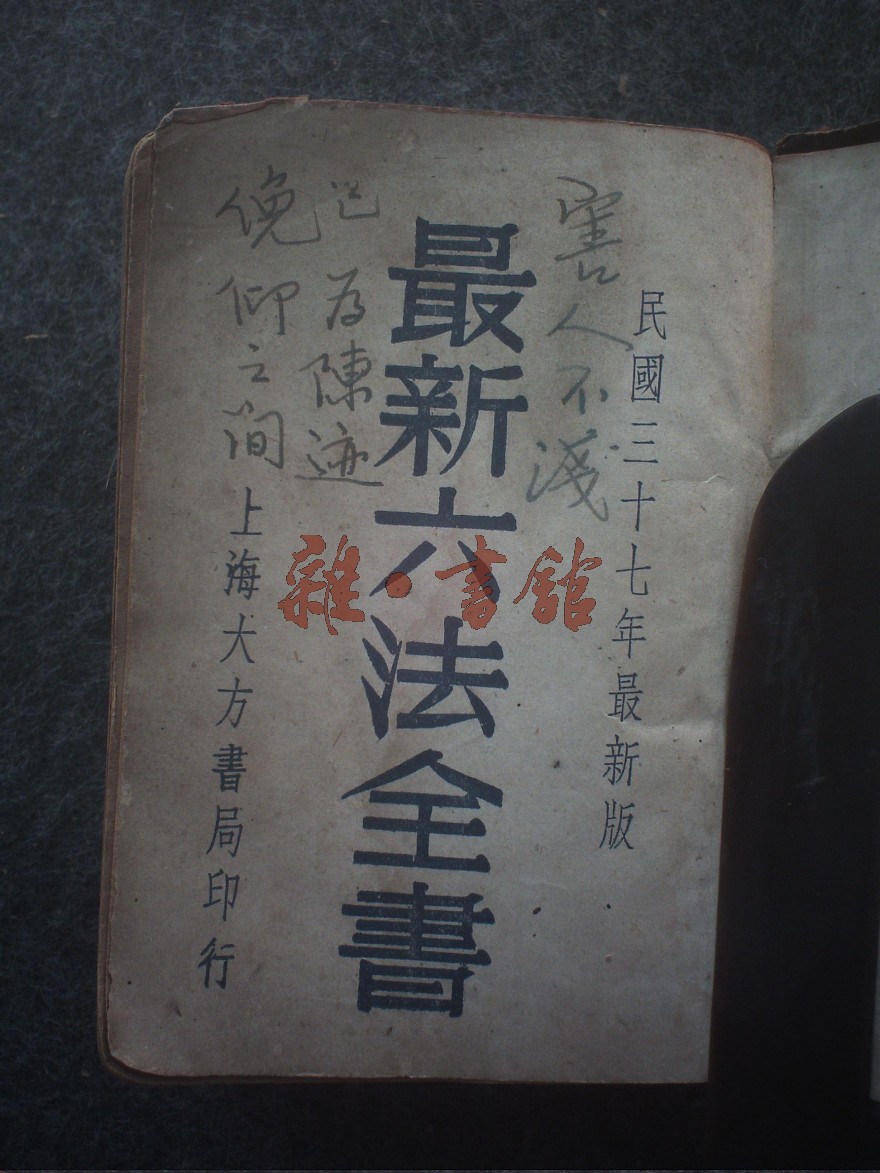 民國三十七年最新版
害人不淺
最新六法全書
俛仰之间
已为陳迹
上海大方書局印行
雜·書館